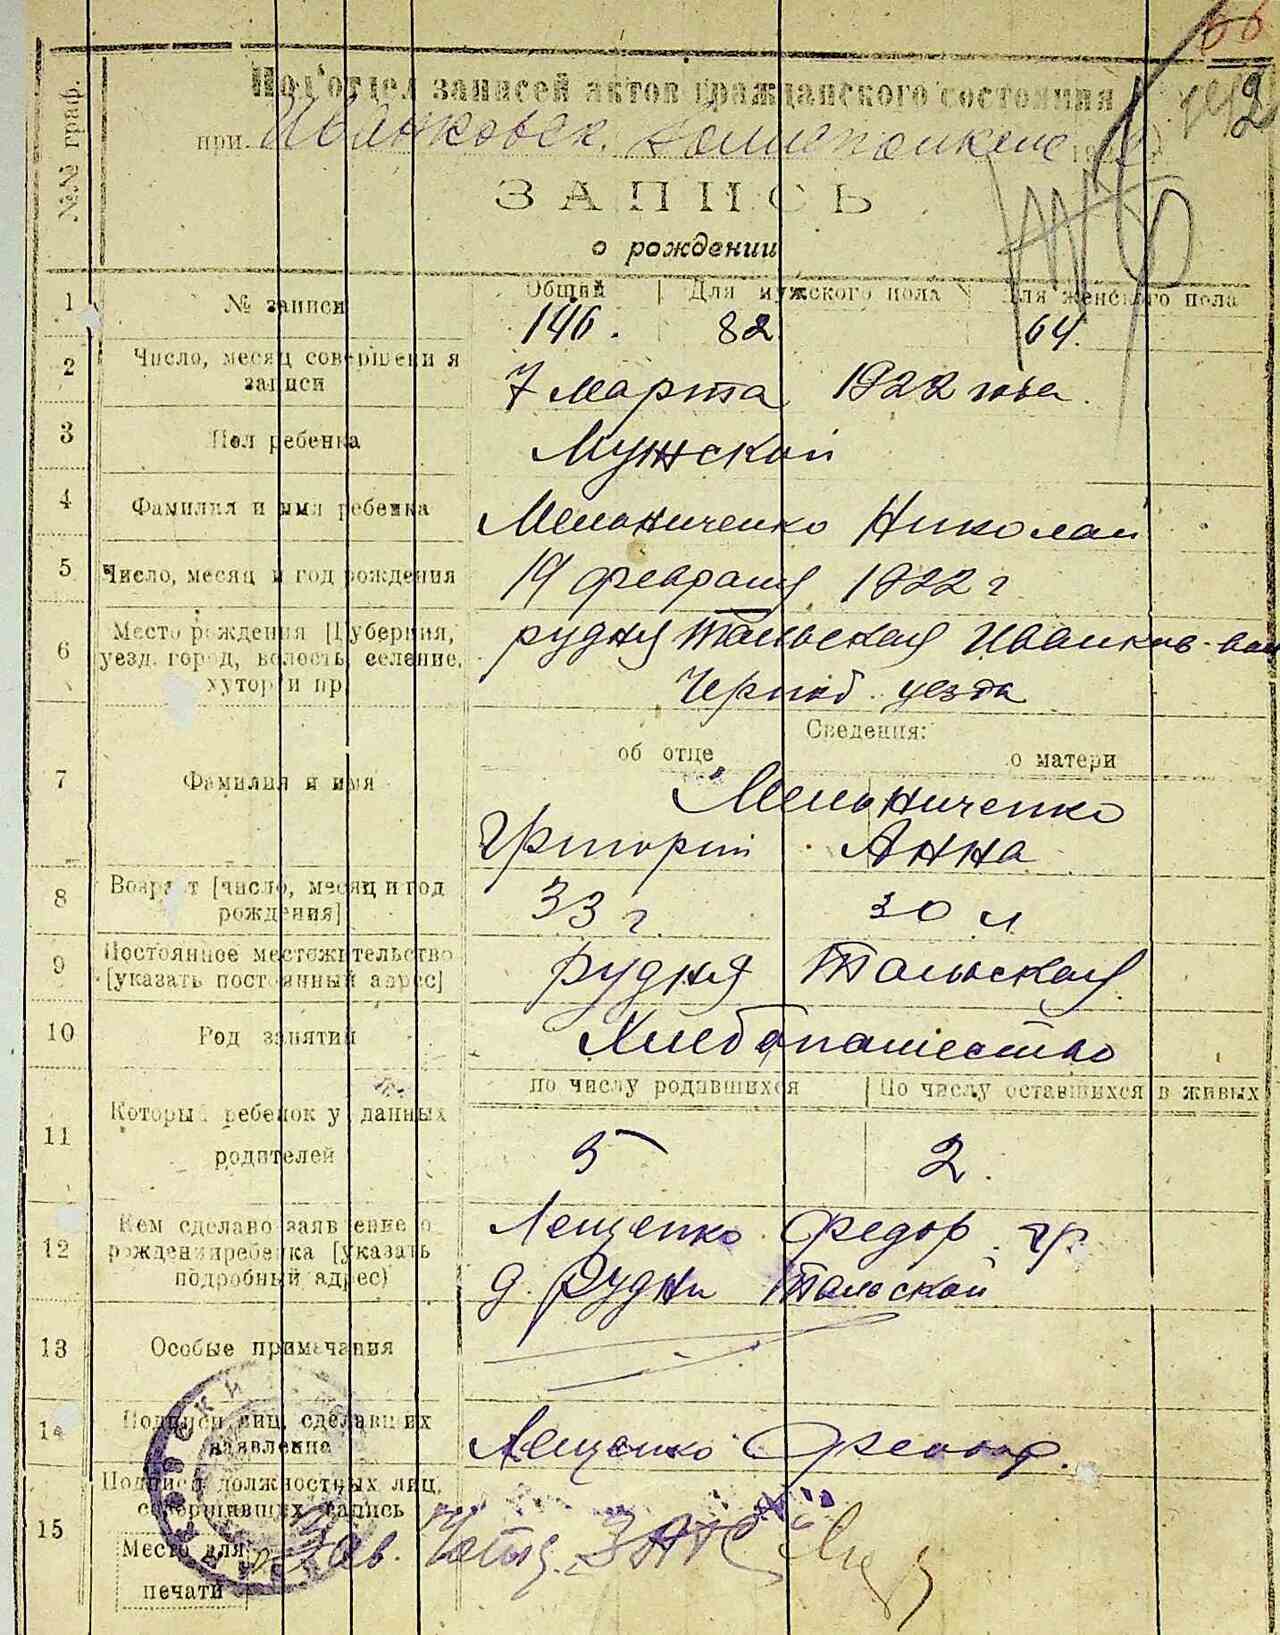 66
2
№№ граф.
Под'отдел записей актов гражданского состояния
при Иванковск. Волисполкоме
ЗАПИСЬ
о рождении
1 № записи Общий Для мужского пола Для женского пола
146. 82 64.
2 Число, месяц совершения записи 7 марта 1922 года.
3 Пол ребенка Мужской
4 Фамилия и имя ребенка Мельниченко Николай
5 Число, месяц и год рождения 19 февраля 1922 г
6 Место рождения [Губерния, уезд, город, волость, селение, хутор и пр. рудня Тальская Иванков. вол
Черноб. уезда
Сведения:
об отце о матери
7 Фамилия и имя Мельниченко
Григорий Анна
8 Возраст [число, месяц и год рождения] 33 г. 30 л
9 Постоянное местожительство [указать постоянный адрес] рудня Тальская
10 Род занятий Хлебопашество
по числу родившихся По числу оставшихся в живых
11 Который ребенок у данных родителей 5 2.
12 Кем сделано заявление о рождении ребенка [указать подробный адрес) Лещенко Федор гр.
д. Рудни Тальской
13 Особые примечания
14 Подписи лиц, сделавших заявление Лещенко Федор.
15 Подписи должностных лиц, совершивших запись
Место для печати
Зав. ЗАГС